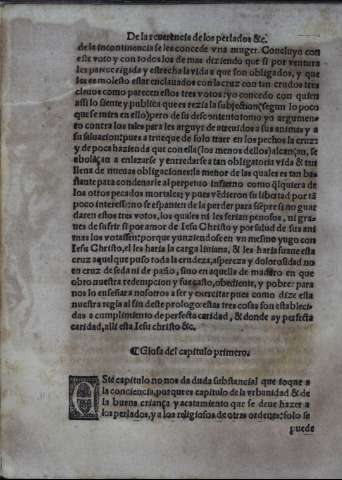 De la reuerencia de los perlados &c.
de la incontinencia se les concede vna muger. Concluyo con
este voto y con todos los de mas diziendo que si por ventura
les parece rigida y estrecha la vida a que son obligados, y que
les es molesto estar enclauados con la cruz con tan crudos tres
clauos como parecen estos tres votos: yo concedo con quien
assi lo siente y publica que es rezia la subjection (segun lo poco
que se mira en ello) pero de su descontento tomo yo argumen-
to contra los tales para les arguyr de atreuidos a sus animas y a
su saluacion: pues a trueque de solo traer en los pechos la cruz
y de poca hazienda que con ella (los menos dellos) alcançan, se
abalãçan a enlazarse y enredarse a tan obligatoria vida & tan
llena de nueuas obligaciones: la menor de las quales es tan bas-
tante para condenarle al perpetuo infierno como q̃lquiera de
los otros pecados mortales; y pues vẽdieron su libertad por tã
poco interesse: no se espanten de la perder para siẽpre si no guar
daren estos tres votos, los quales ni les serian penosos, ni gra-
ues de sufrir si por amor de Iesu Christo y por salud de sus ani
mas los votassen: porque yunziendose en vn mesmo yugo con
Iesu Christo, el les haria la carga liuiana, & les haria suaue esta
cruz aquel que puso toda la crudeza, aspereza y dolorosidad no
en cruz de seda ni de paño, sino en aquella de madero en que
obro nuestra redempcion y fue casto, obediente, y pobre: para
nos lo enseñar a nosotros a ser y exercitar pues como dize esta
nuestra regla al fin deste prologo: estas tres cosas son estableci-
das a cumplimiento de perfecta caridad, & donde ay perfecta
caridad, alli esta Iesu christo &c.
¶ Glosa del capitulo primero.
Ste capitulo no nos da duda substancial que toque a
la conciencia, porque es capitulo de la vrbanidad & de
la buena criança y acatamiento que se deue hazer a
los perlados, y a los religiosos de otras ordenes: solo se
puede